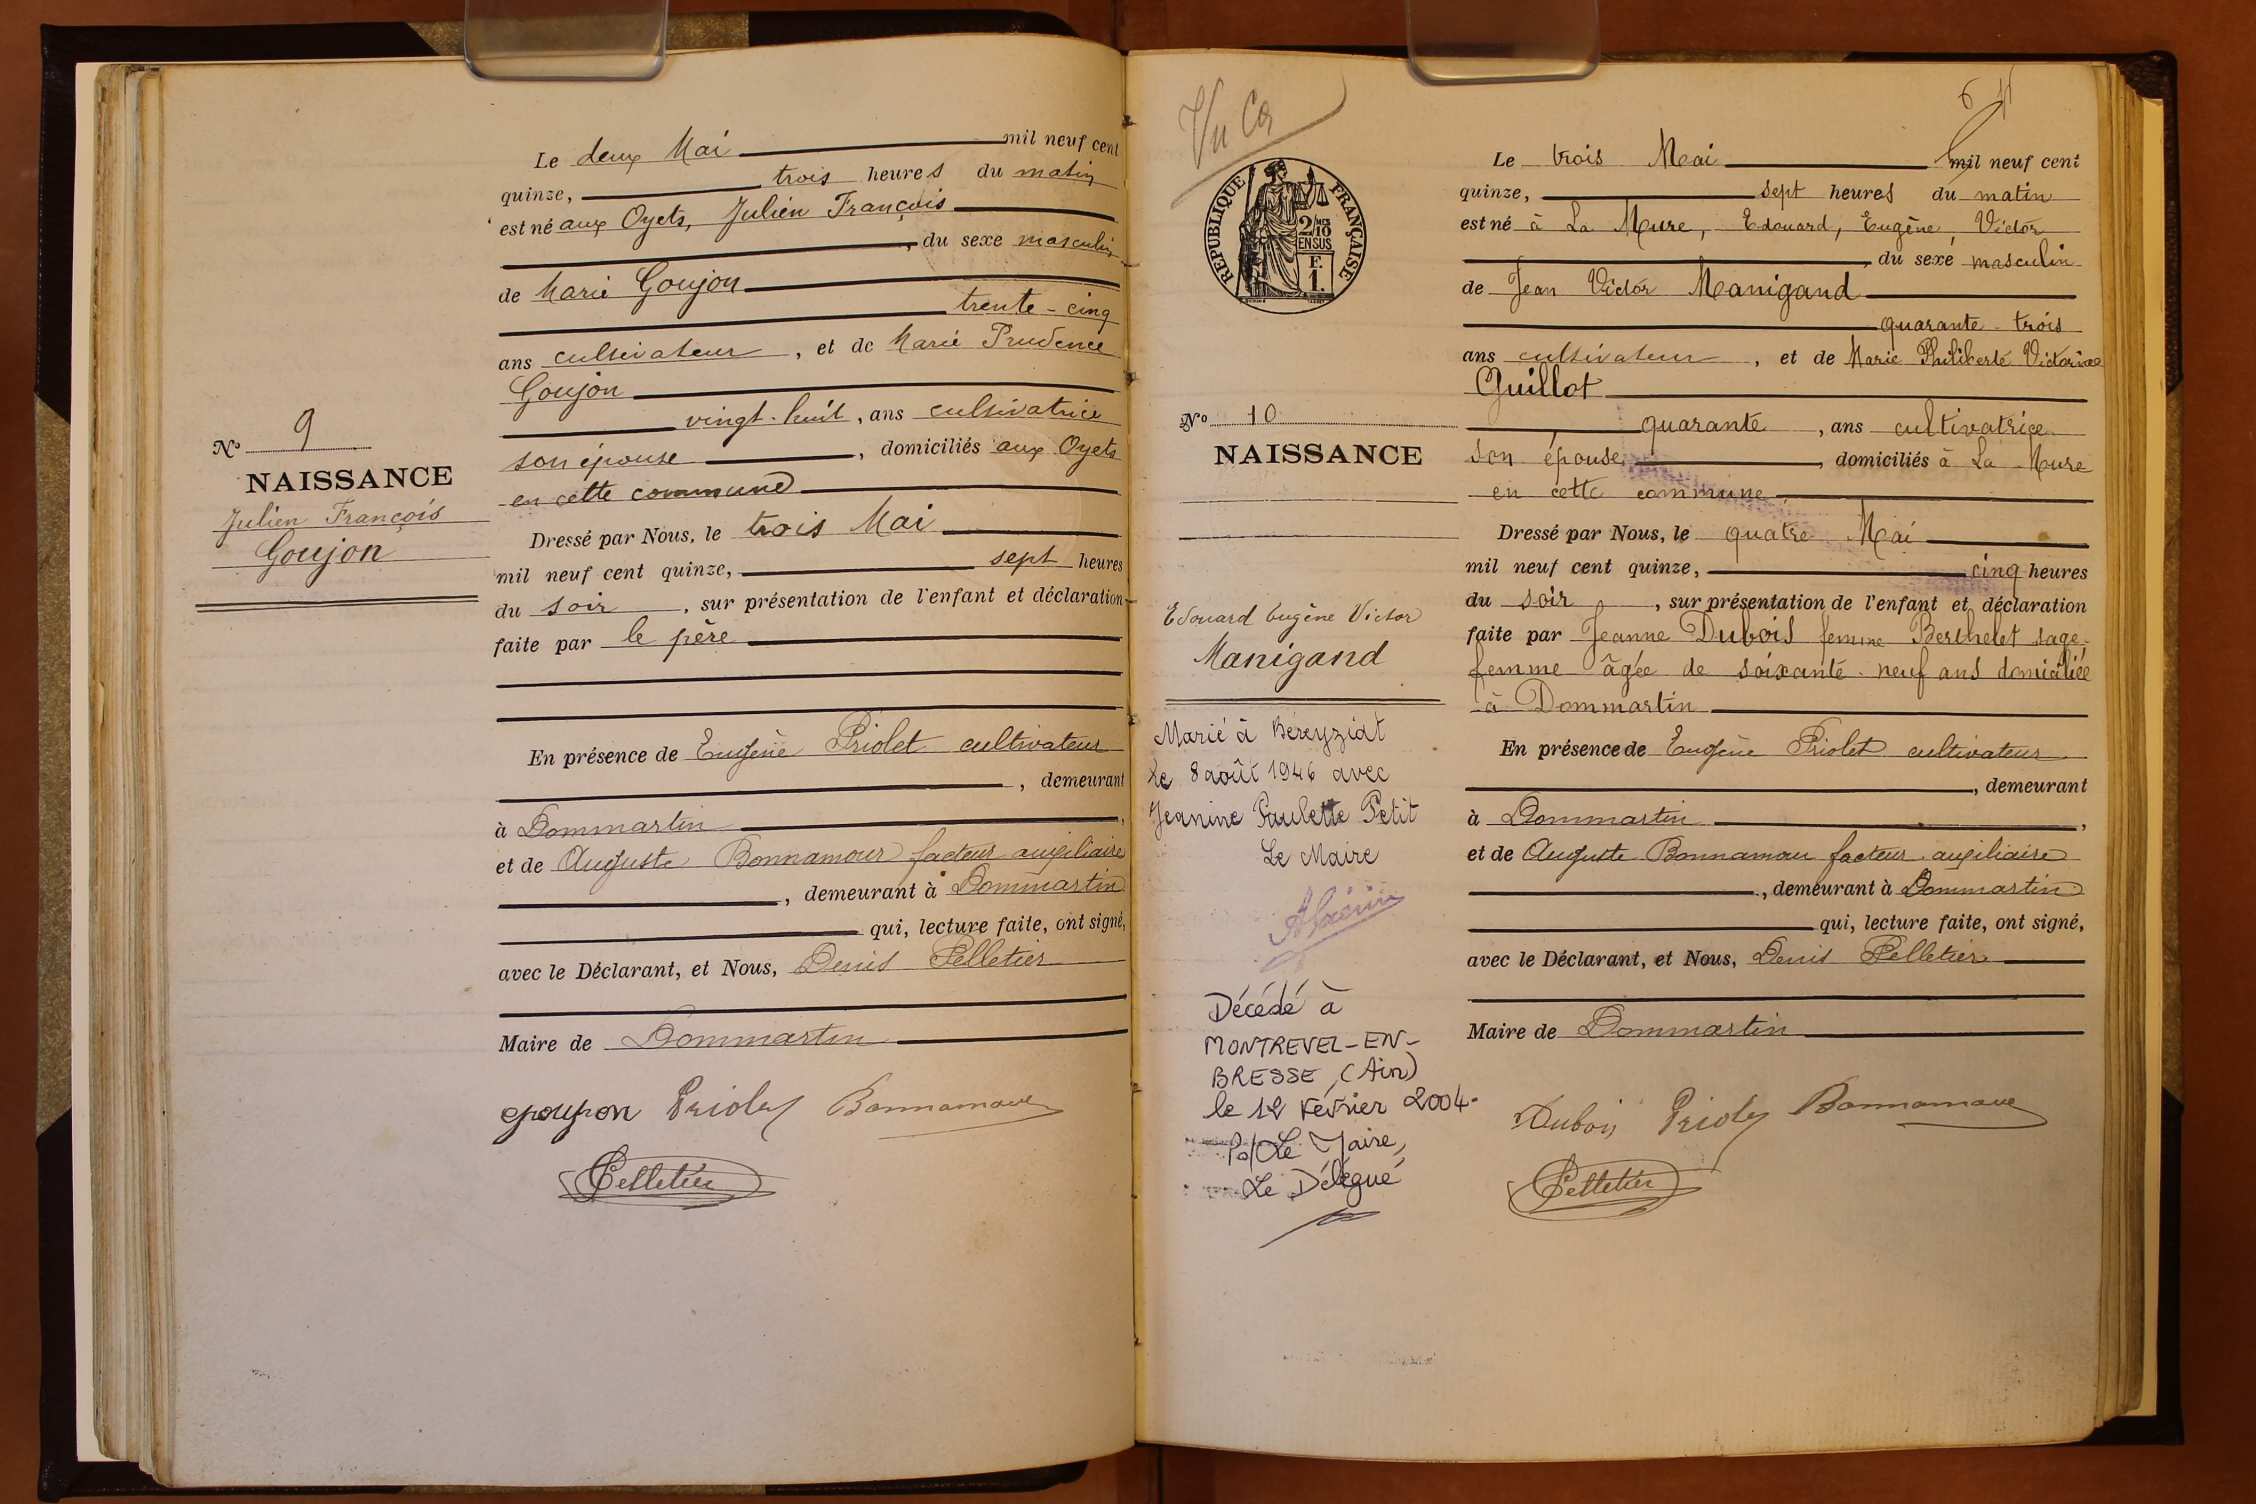 N° 9
NAISSANCE
Julien François
Goujon
Le deux Mai mil neuf cent
quinze, trois heures du matin
est né aux Oyets, Julien François
, du sexe masculin
de Marie Goujon
trente-cinq
ans cultivateur, et de Marie Prudence
Goujon
vingt-huit, ans cultivatrice
son épouse, domiciliés aux Oyets
en cette commune
Dressé par Nous, le trois Mai
mil neuf cent quinze, sept heures
du soir, sur présentation de l'enfant et déclaration
faite par le père
En présence de Eugène Priolet cultivateur
, demeurant
à Dommartin,
et de Auguste Bonnamour facteur auxiliaire
, demeurant à Dommartin
qui, lecture faite, ont signé,
avec le Déclarant, et Nous, Denis Pelletier
Maire de Dommartin
goujon Priolet Bonnamour
Pelletier
Vu
REPUBLIQUE FRANÇAISE
2/10 MES
EN SUS
F.
1.
N° 10
NAISSANCE
Edouard Eugène Victor
Manigand
Marié à Béreyziat
Le 8 août 1946 avec
Jeanine Paulette Petit
Le Maire
Décédé à
MONTREVEL-EN-
BRESSE (Ain)
le 12 Février 2004-
Po/Le Maire,
Le Délégué
6
Le trois Mai mil neuf cent
quinze, sept heures du matin
est né à La Mure, Edouard, Eugène, Victor
, du sexe masculin
de Jean Victor Manigand
quarante-trois
ans cultivateur, et de Marie Philiberte Victorine
Guillot
quarante, ans cultivatrice
son épouse, domiciliés à La Mure
en cette commune
Dressé par Nous, le quatre Mai
mil neuf cent quinze, cinq heures
du soir, sur présentation de l'enfant et déclaration
faite par Jeanne Dubois femme Berthelet sage-
femme âgée de soixante-neuf ans domiciliée
à Dommartin
En présence de Eugène Priolet cultivateur
, demeurant
à Dommartin,
et de Auguste Bonnamour facteur auxiliaire
, demeurant à Dommartin
qui, lecture faite, ont signé,
avec le Déclarant, et Nous, Denis Pelletier
Maire de Dommartin
Dubois Priolet Bonnamour
Pelletier